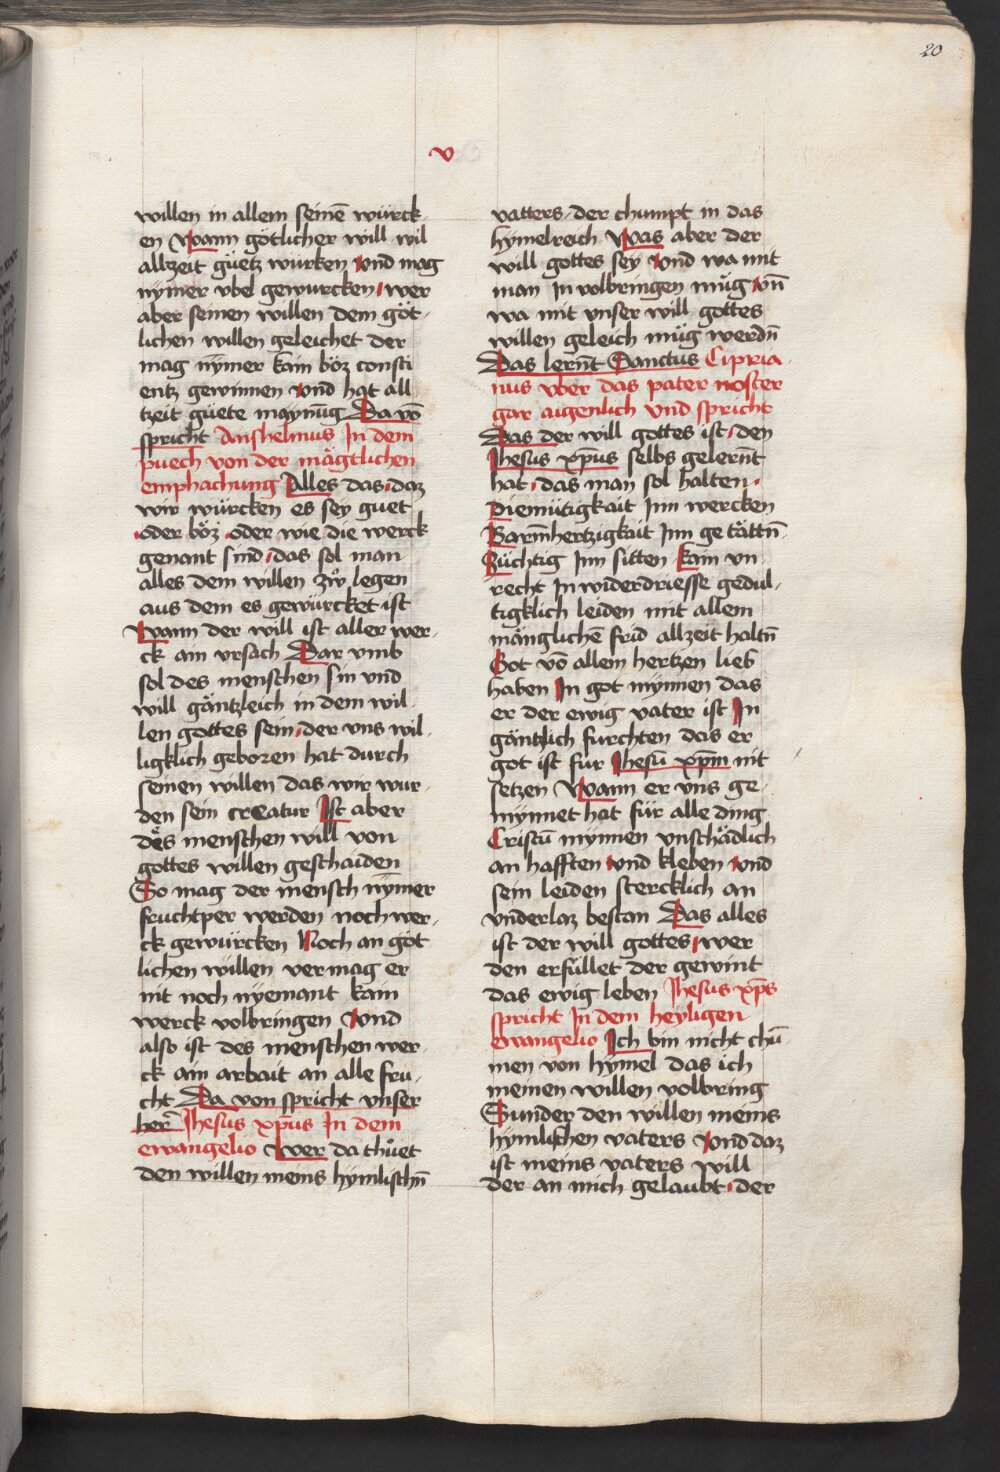 20
v
willen in allem seinē würck
en Wann götlicher will wil
allzeit güetz würken Vnd mag
nymer vbel gewurcken wer
aber seinen willen dem göt
lichen willen geleichet der
mag nymer kain böz consti
entz gewinnen Vnd hat all
tzeit güete maynūg Da vō
spricht Anshelmus In dem
puech von der mägtlichen
emphachung Alles das daz
wir würcken es sey guet
oder böz oder wie die werck
genant sind das sol man
alles dem willen zů legen
aus dem es gewürcket ist
Wann der will ist aller wer
ck ain vrsach Dar vmb
sol des menschen sin vnd
will gäntzleich in dem wil
len gottes sein der vns wil
ligklich geboren hat durch
seinen willen das wir wur
den sein creatur Ist aber
des menschen will von
gottes willen geschaiden
So mag der mensch nymer
fruchtper werden noch wer
ck gewürcken Noch an göt
lichen willen vermag er
nit noch nyemant kain
werck volbringen Vnd
also ist des menschen wer
ck ain arbait an alle fru
cht Da von spricht vnser
her Jhesus xp̄us In dem
ewangelio Wer da thůet
den willen meins hymlischn̄
vatters der chumpt in das
hymelreich Was aber der
will gottes sey Vnd wa mit
man In volbringen müg vn̄
wa mit vnser will gottes
willen geleich müg werdn̄
Das lernt Sanctus Cipria
nus vber das pater noster
gar augenlich vnd spricht
Das der will gottes ist den
Jhesus xp̄us selbs gelernt
hat das man sol halten
Diemütigkait Inn wercken
Barmhertzigkait Inn getättn̄
Züchtig Inn sitten Kain vn
recht In widerdriesse gedul
tigklich leiden mit allem
mänglichē frid allzeit haltn̄
Got vō allem hertzen lieb
haben In got mynnen das
er der ewig vater ist In
gäntzlich furchten das er
got ist für Jhesū xp̄m nit
setzen Wann er vns ge
mynnet hat für alle ding
Cristū mynnen vnschädlich
an hafften Vnd kleben Vnd
sein leiden stercklich an
vnderlaz bestan Das alles
ist der will gottes wer
den erfüllet der gewint
das ewig leben Jhesus xp̄s
spricht In dem heyligen
ewangelio Ich bin nicht chū
men von hymel das ich
meinen willen volbring
Sunder den willen meins
hymlischen vaters Vnd daz
ist meins vaters will
der an mich gelaubt der